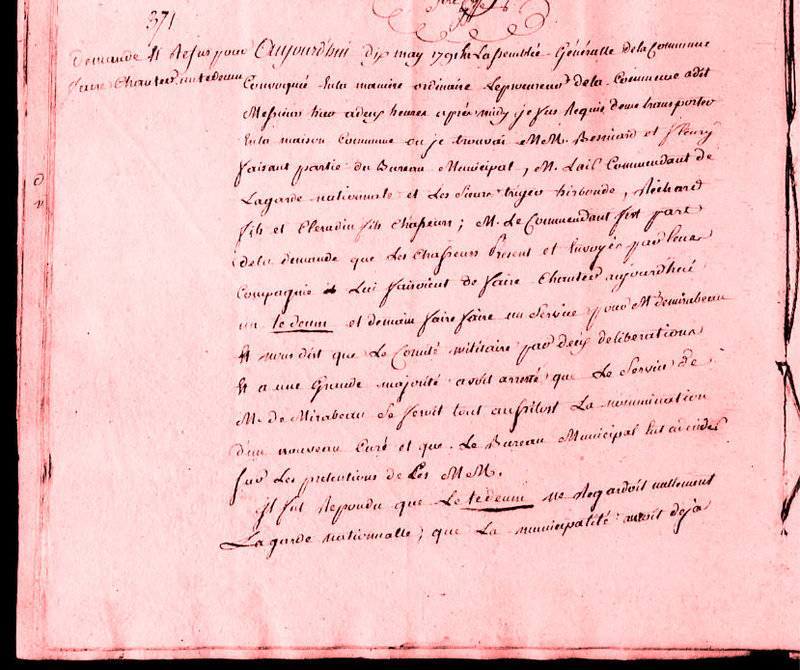 371
Demande et Refus pour
faire Chanter un tedeum
Aujourd'hui dix may 1791 Lassemblée Généralle dela Commune
Convoquée Enla maniere ordinaire Leprocureur dela Commune adit
Messieurs hier adeux heures après midy je fus Requis deme transporter
Enla maison Commune ou je trouvai MM. Besnard et fleury
faisant partie du Bureau Municipal, M. Lail Commendant de
Lagarde nationnale et Les Sieurs triger hirbonde, Richard
fils et Cleradin fils Chasseurs; M. Le Commendant fist part
dela demande que Les Chasseurs Présent et Envoyés par leur
Compagnie Lui faisoient de faire Chanter aujourd'hui
un tedeum et demain faire faire un Service pour M. demirabeau
Et nous dist que Le Comité militaire par deux deliberations
Et a une Grande majorité avoit arresté que Le Service de
M. de Mirabeau Se feroit tout aussitost La nommination
d'un nouveau Curé et que Le Bureau Municipal Eut adecider
sur Les pretentions de Ces MM.
Il fut Repondu que Le tedeum ne Regardoit nullement
Lagarde nationnalle; que La municipalité avoit déjà